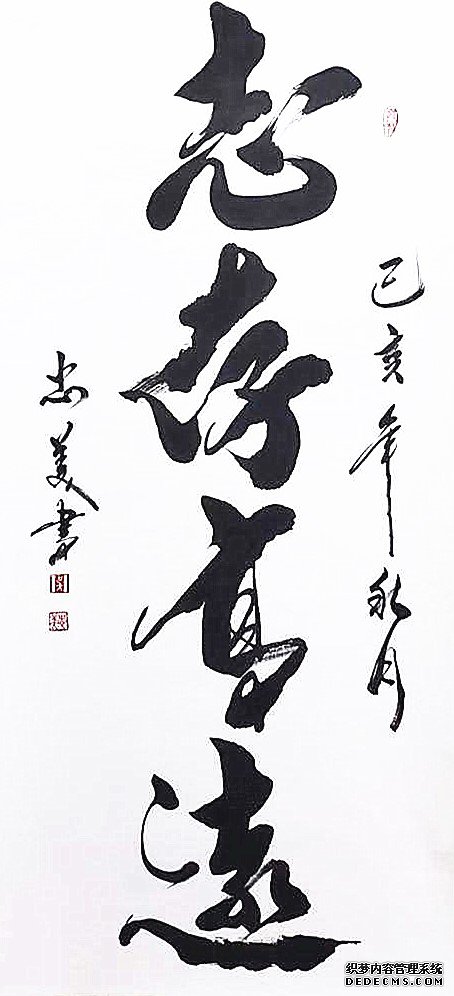 己亥年秋月
志存高遠
忠美書
织梦内容管理系统
DEDECMS.COM